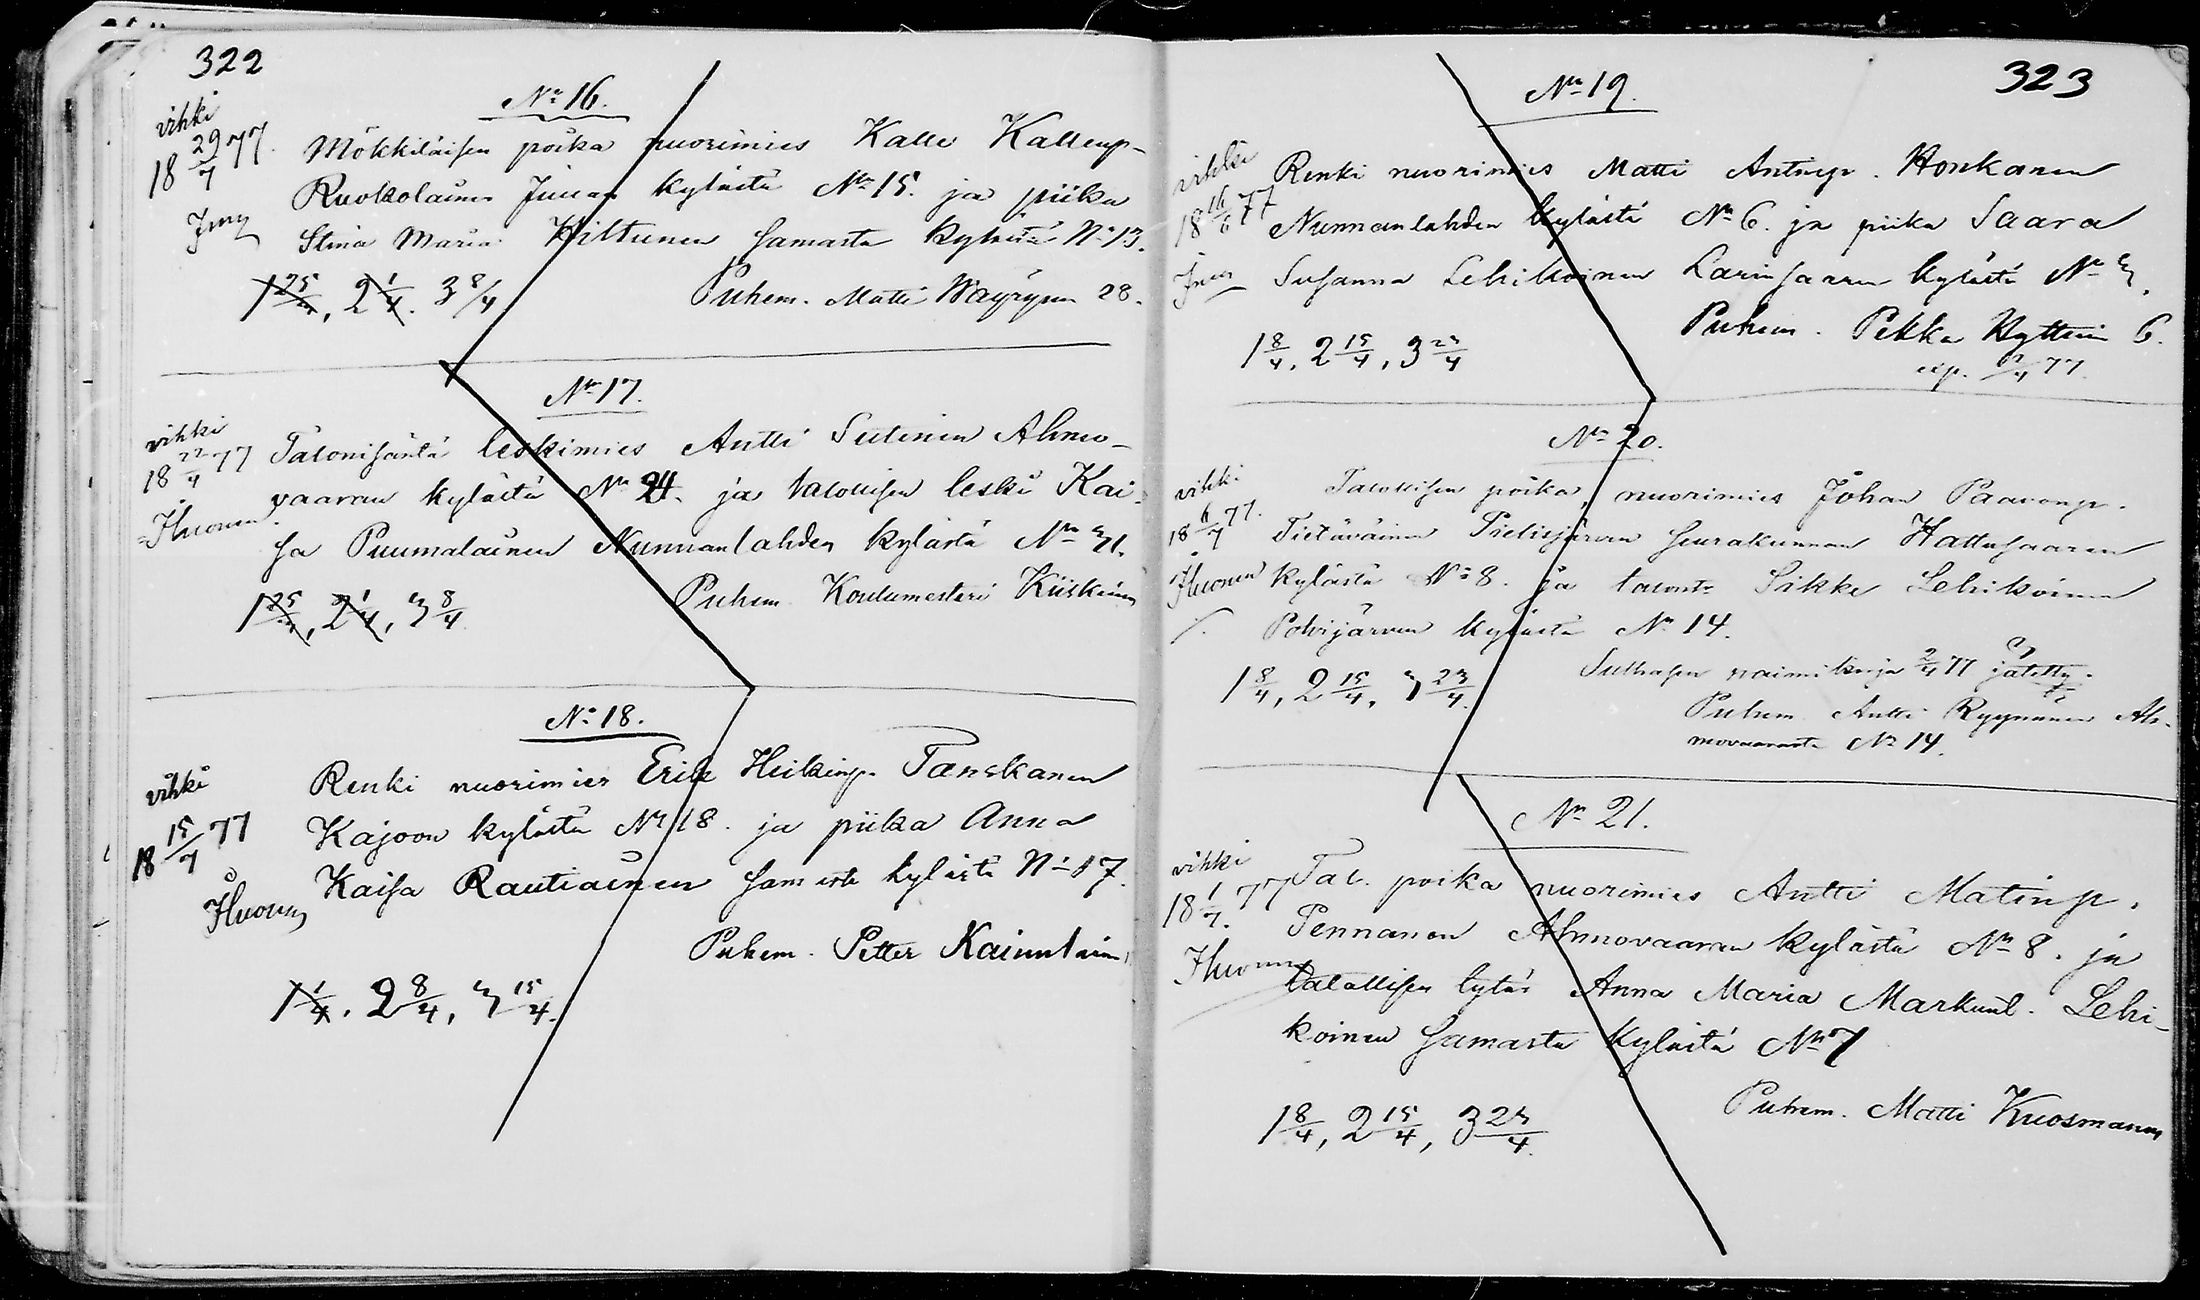 322
No 16.
vihki
18 29/7 77.
Mökkiläisen poika nuorimies Kalle Kallenp-
Ruokolainen Juuan kylästä No 15. ja piika
Stina Maria Hiltunen samasta kylästä No 13.
1 25/4, 2 1/4. 3 8/4
Puhem. Matti Wäyrynen 28.
No 17.
vihki
18 22/4 77
Ihuonen
Talonisäntä leskimies Antti Sutinen Ahmo-
vaaran kylästä No 24. ja talollisen leski Kai-
sa Puumalainen Nunnanlahden kylästä No 31.
1 25/4, 2 1/4, 3 8/4
Puhem. Koulumestari Kiiskinen
No 18.
vihki
18 15/7 77
Ihuonen
Renki nuorimies Erik Heikinp. Tanskanen
Kajoon kylästä No 18. ja piika Anna
Kaisa Rautiainen samasta kylästä No 17.
Puhem. Petter Kainulainen
1 1/4, 2 8/4, 3 15/4.
323
No 19.
vihki
18 16/6 77
Renki nuorimies Matti Antinp. Honkanen
Nunnanlahden kylästä No 6. ja piika Saara
Susanna Lehikoinen Larinsaaren kylästä No 3.
Puhem. Pekka Hyttinen 6.
1 8/4, 2 15/4, 3 23/4
No 20.
vihki
18 6/7 77.
Ihuonen
Talollisen poika, nuorimies Johan Paavonp.
Tietäväinen Pielisjärven seurakunnan Hattusaaren
kylästä No 8. ja talonts Sikke Lehikoinen
Polvijärven kylästä No 14.
1 8/4, 2 15/4, 3 23/4.
Sulhasen naimakirja 2/4 77 jätetty.
Puhem. Antti Ryynänen Ah-
movaarasta No 14.
No 21.
vihki
18 1/7. 77
Ihuonen
Tal. poika nuorimies Antti Matinp.
Pennanen Ahmovaaran kylästä No 8. ja
talollisen tytär Anna Maria Markunt. Lehi-
koinen samasta kylästä No 7
Puhem. Matti Kuosmanen
1 8/4, 2 15/4, 3 23/4.